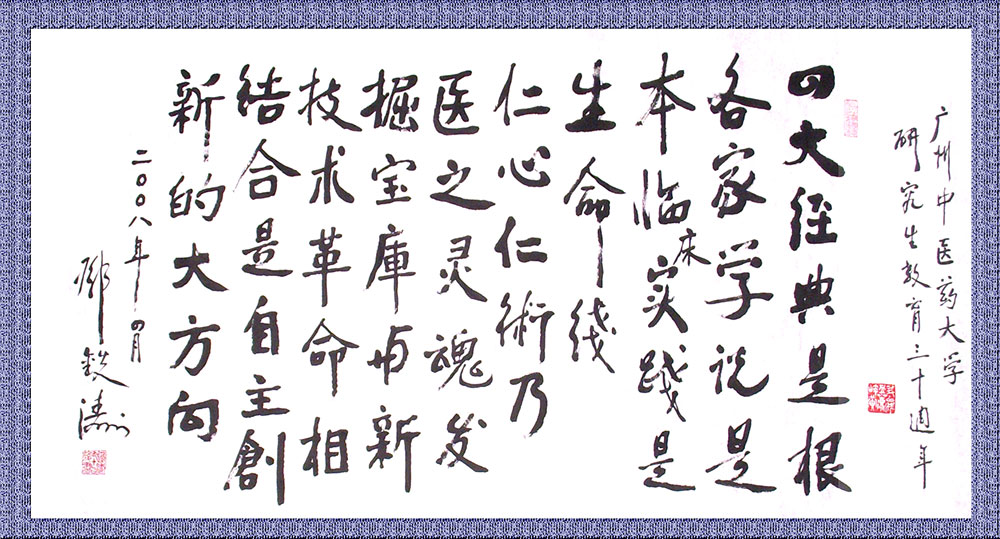 广州中医药大学
研究生教育三十週年
四大径典是根
各家学说是
本临床实践是
生命线
仁心仁術乃
医之灵魂发
掘宝庫与新
技求革命相
结合是自主創
新的大方向
二〇〇八年四月
鄧铁涛